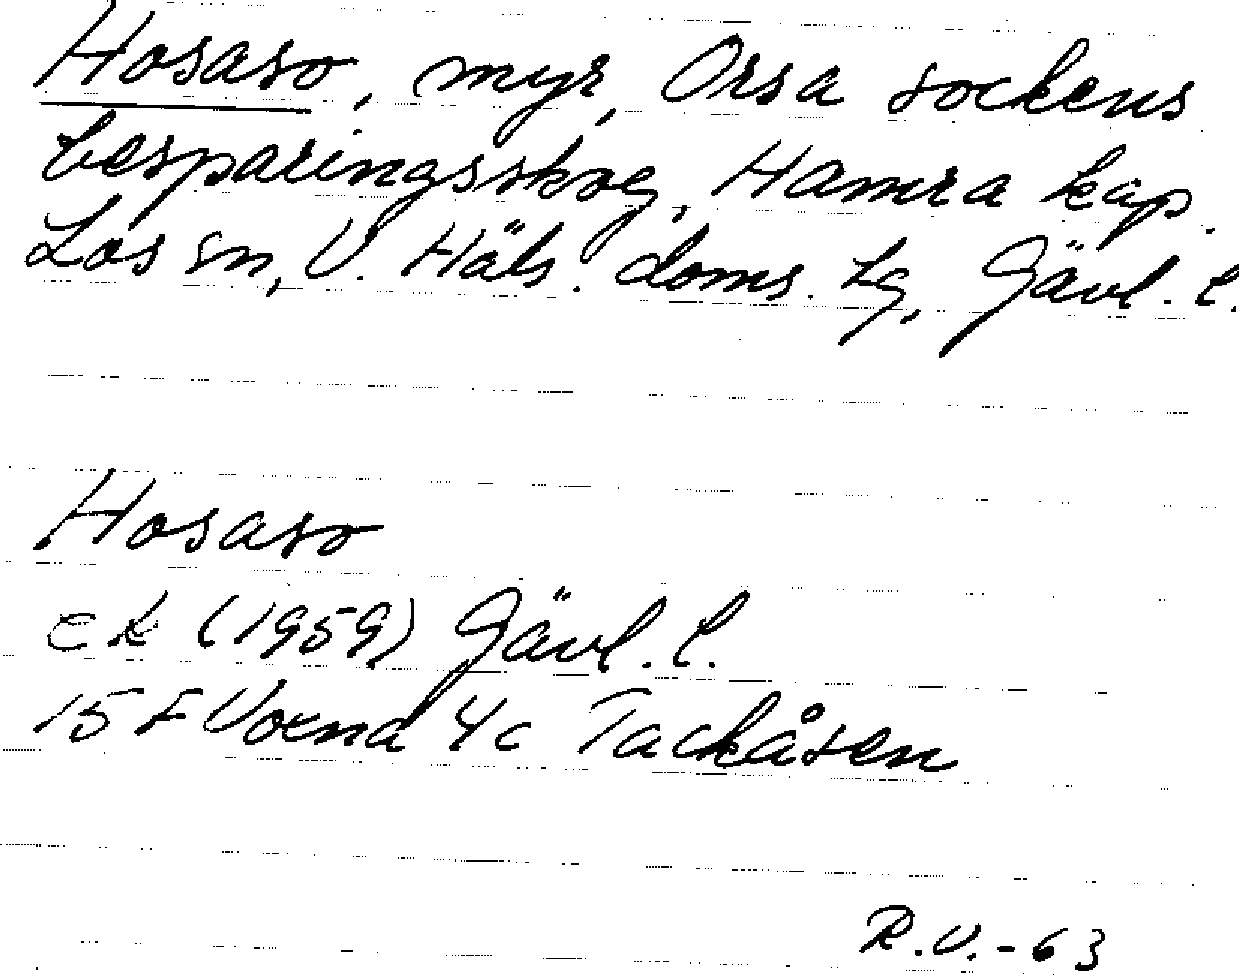 Hosaso, myr, Orsa sockens
besparingsskog, Hamra kap.
Los sn, V. Häls. doms. tg, Gävl. l.
Hosaso
EK (1959) Gävl. l.
15 F Voxna 4c Tackåsen
R.V.-63